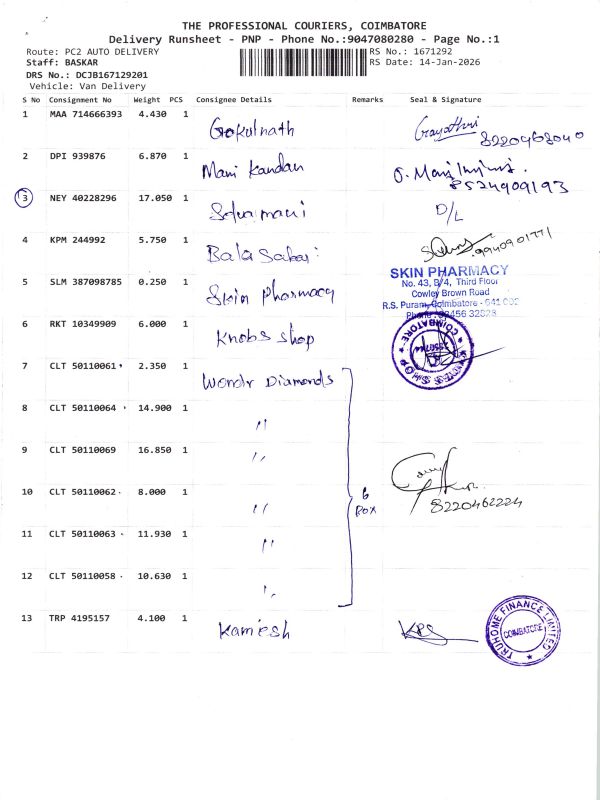 THE PROFESSIONAL COURIERS, COIMBATORE
Delivery Runsheet - PNP - Phone No.:9047080280 - Page No.:1
Route: PC2 AUTO DELIVERY
RS No.: 1671292
Staff: BASKAR
RS Date: 14-Jan-2026
DRS No.: DCJB167129201
Vehicle: Van Delivery
S No Consignment No Weight PCS Consignee Details Remarks Seal & Signature
1 MAA 714666393 4.430 1 Gokulnath Gayathri
8220463040
2 DPI 939876 6.870 1 Mani Kandan
8524909193
3 NEY 40228296 17.050 1 Selvamani D/L
4 KPM 244992 5.750 1 Bala Sabari
9940901771
5 SLM 387098785 0.250 1 Skin Pharmacy
SKIN PHARMACY
No. 43, B/4, Third Floor
Cowley Brown Road
R.S. Puram, Coimbatore - 641 002
6 RKT 10349909 6.000 1 Knobs shop
COIMBATORE
7 CLT 50110061 2.350 1 Wondr Diamonds
8 CLT 50110064 14.900 1 "
9 CLT 50110069 16.850 1 "
10 CLT 50110062 8.000 1 "
6 Box
8220462224
11 CLT 50110063 11.930 1 "
12 CLT 50110058 10.630 1 "
13 TRP 4195157 4.100 1 Kamesh
TRUHOME FINANCE LIMITED
COIMBATORE